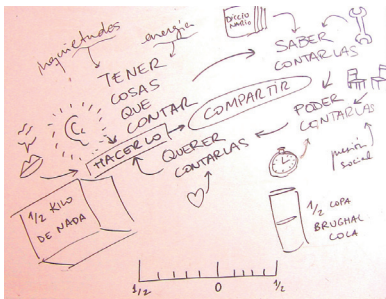 inquietudes
energía
DICCIO
NARIO
TENER
COSAS
QUE
CONTAR
SABER
CONTARLAS
COMPARTIR
PODER
CONTARLAS
HACERLO
QUERER
CONTARLAS
presión
social
1/2 KILO
DE NADA
1/2 COPA
BRUGHAL
COLA
1/2
0
1/2